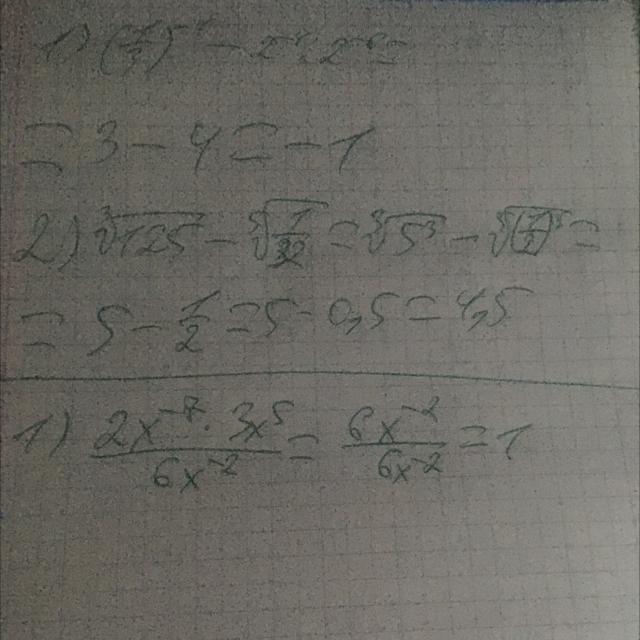 = 3 - 4 = -1
2) ∛125 - ⁵√(1/32) = ∛5³ - ⁵√(1/2)⁵ =
= 5 - 1/2 = 5 - 0,5 = 4,5
1) (2x⁻⁷ · 3x⁵)/(6x⁻²) = (6x⁻²)/(6x⁻²) = 1